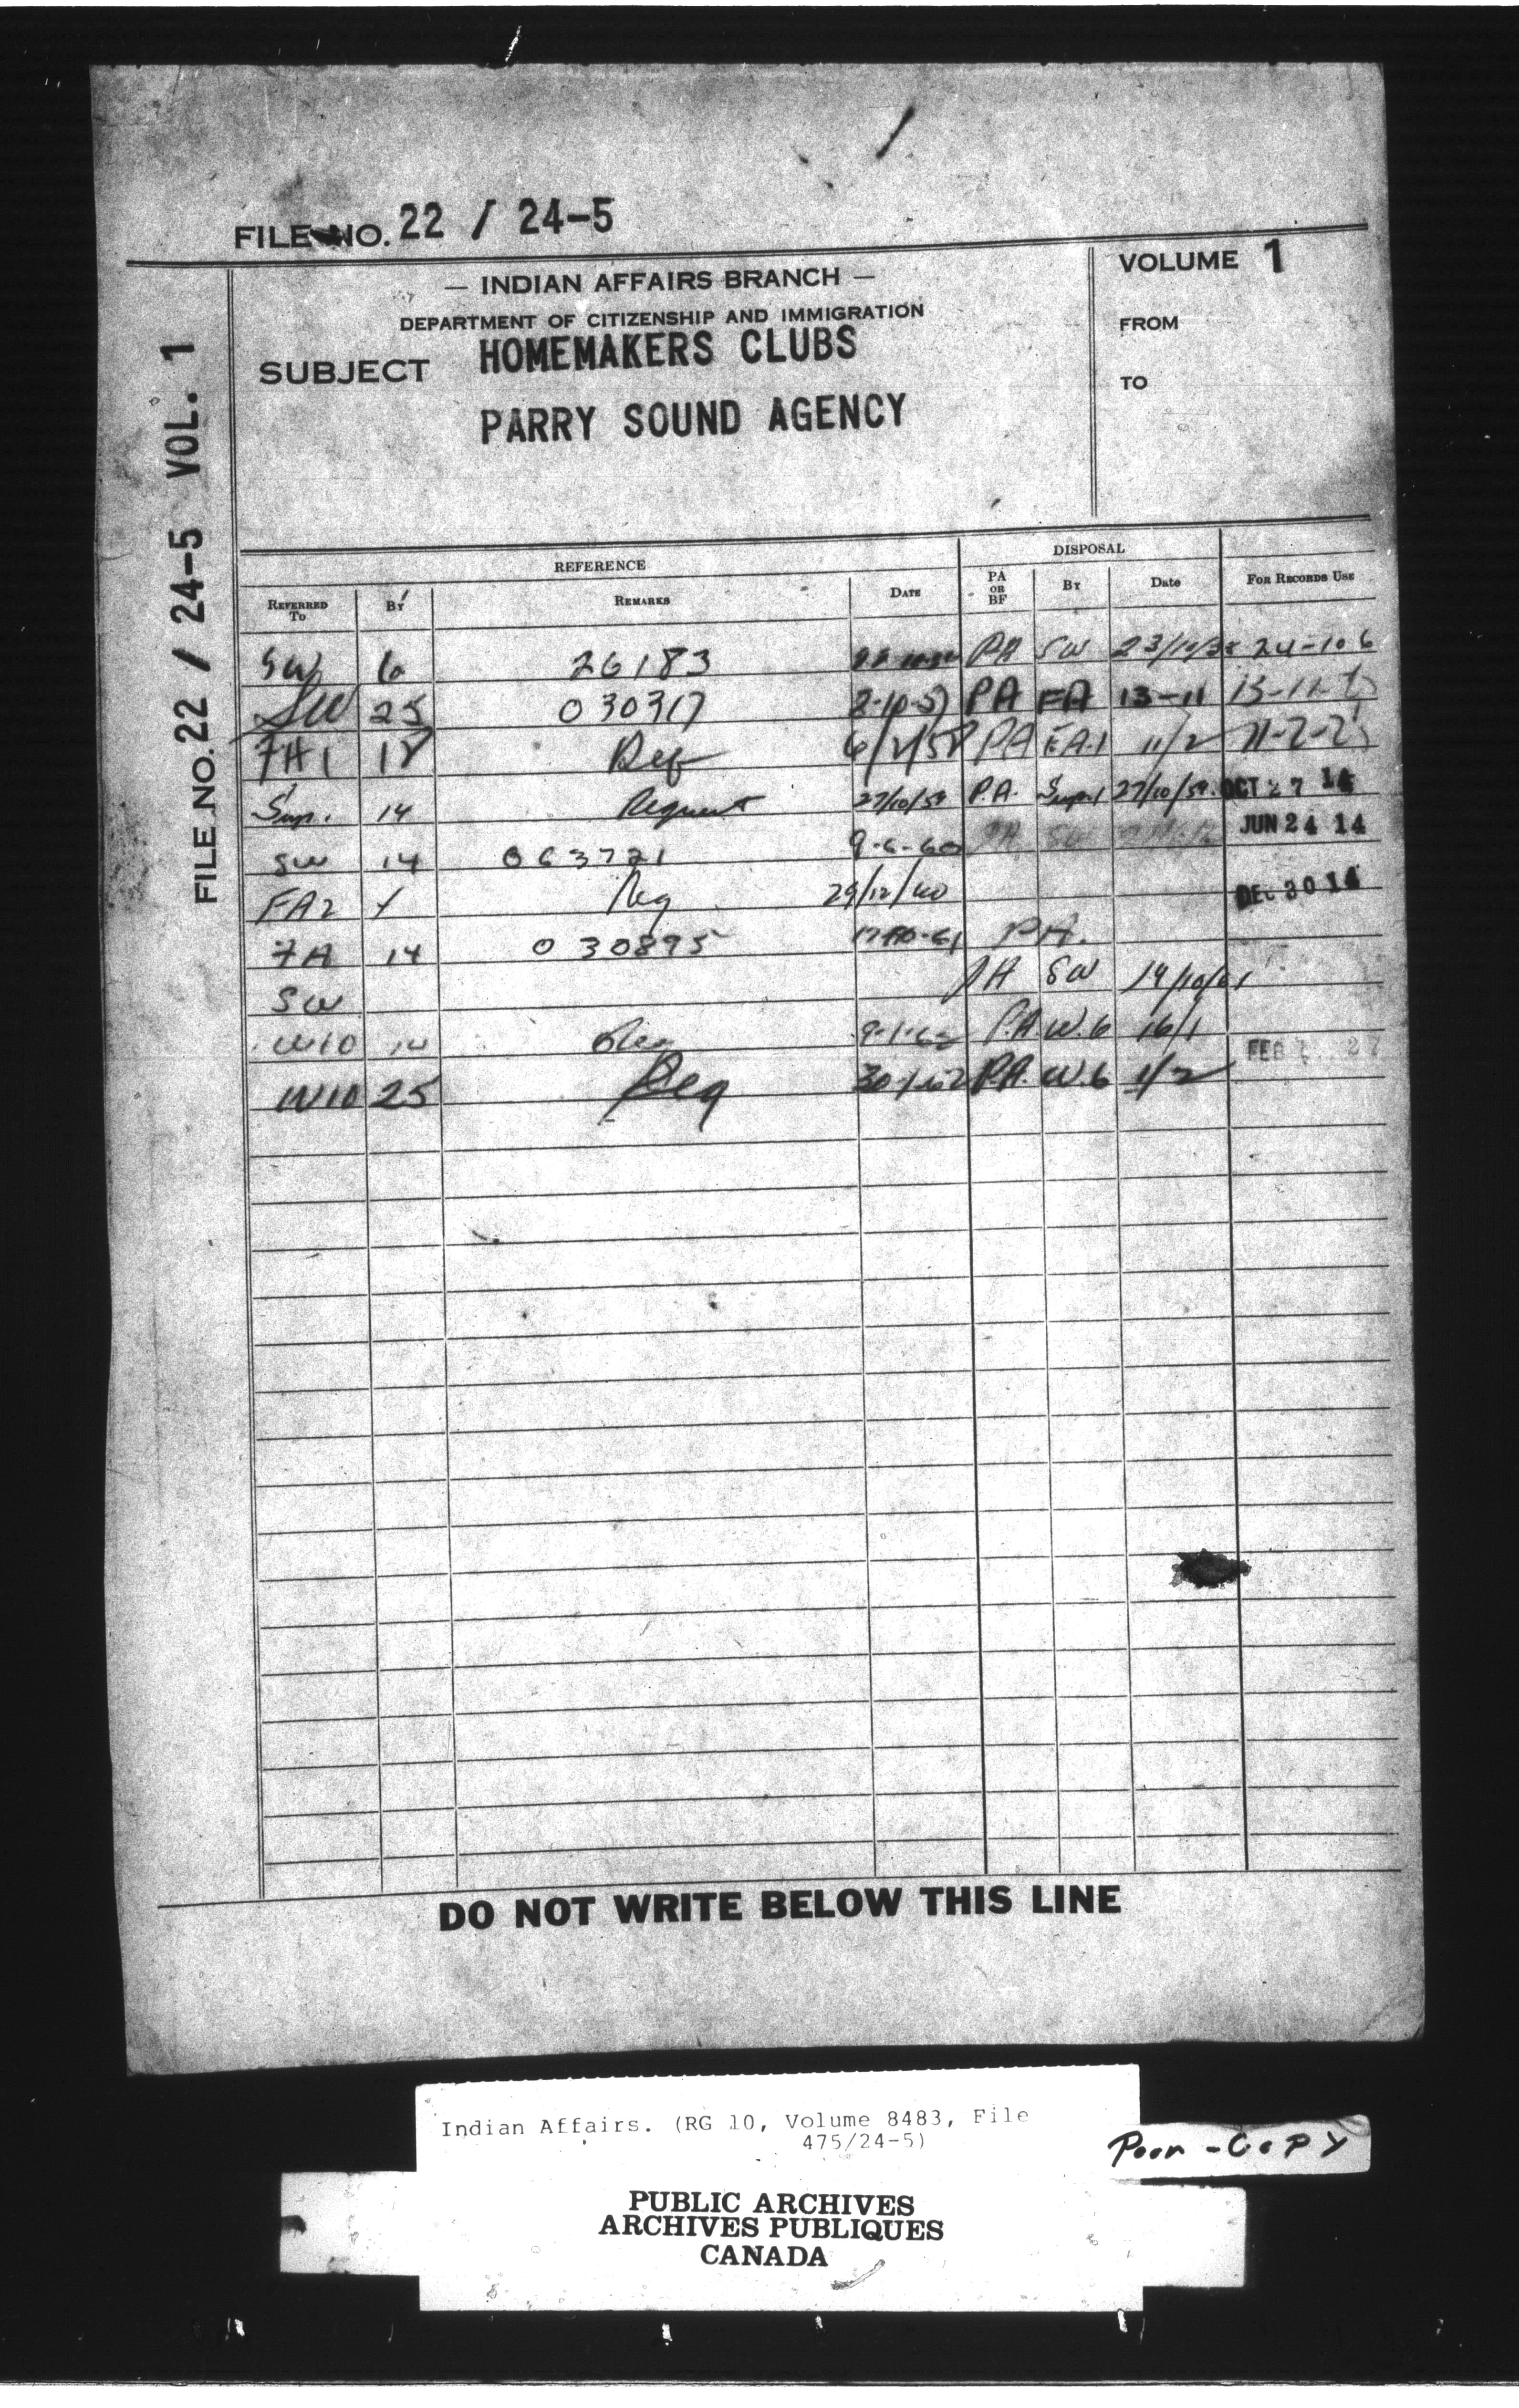 FILE NO. 22 / 24-5
VOLUME 1
— INDIAN AFFAIRS BRANCH —
DEPARTMENT OF CITIZENSHIP AND IMMIGRATION
FROM
SUBJECT HOMEMAKERS CLUBS
TO
PARRY SOUND AGENCY
FILE NO. 22 / 24-5 VOL. 1
REFERENCE DISPOSAL
REFERRED TO BY REMARKS DATE PA OR BF BY Date FOR RECORDS USE
SW 6 26183 PA SW 23/10/ 24-10 6
SW 25 030317 2-10-5 PA EA 13-11 13-11-
18 6/2/58 PA EA.1 11/2 11-2-25
Sup. 14 Request 27/10/59 P.A. Sup.1 27/10/59. OCT 27 14
SW 14 063721 9-6-60 JUN 24 14
FA2 Req 29/12/60 DEC 30 14
FA 14 030895 -61 P.A.
SW PA SW 19/10/61
W10 14 9-1-62 P.A. W.6 16/1
W10 25 Req 30-1-62 P.A. W.6 1/2 FEB 27
DO NOT WRITE BELOW THIS LINE
Indian Affairs. (RG 10, Volume 8483, File
475/24-5)
Poor - COPY
PUBLIC ARCHIVES
ARCHIVES PUBLIQUES
CANADA